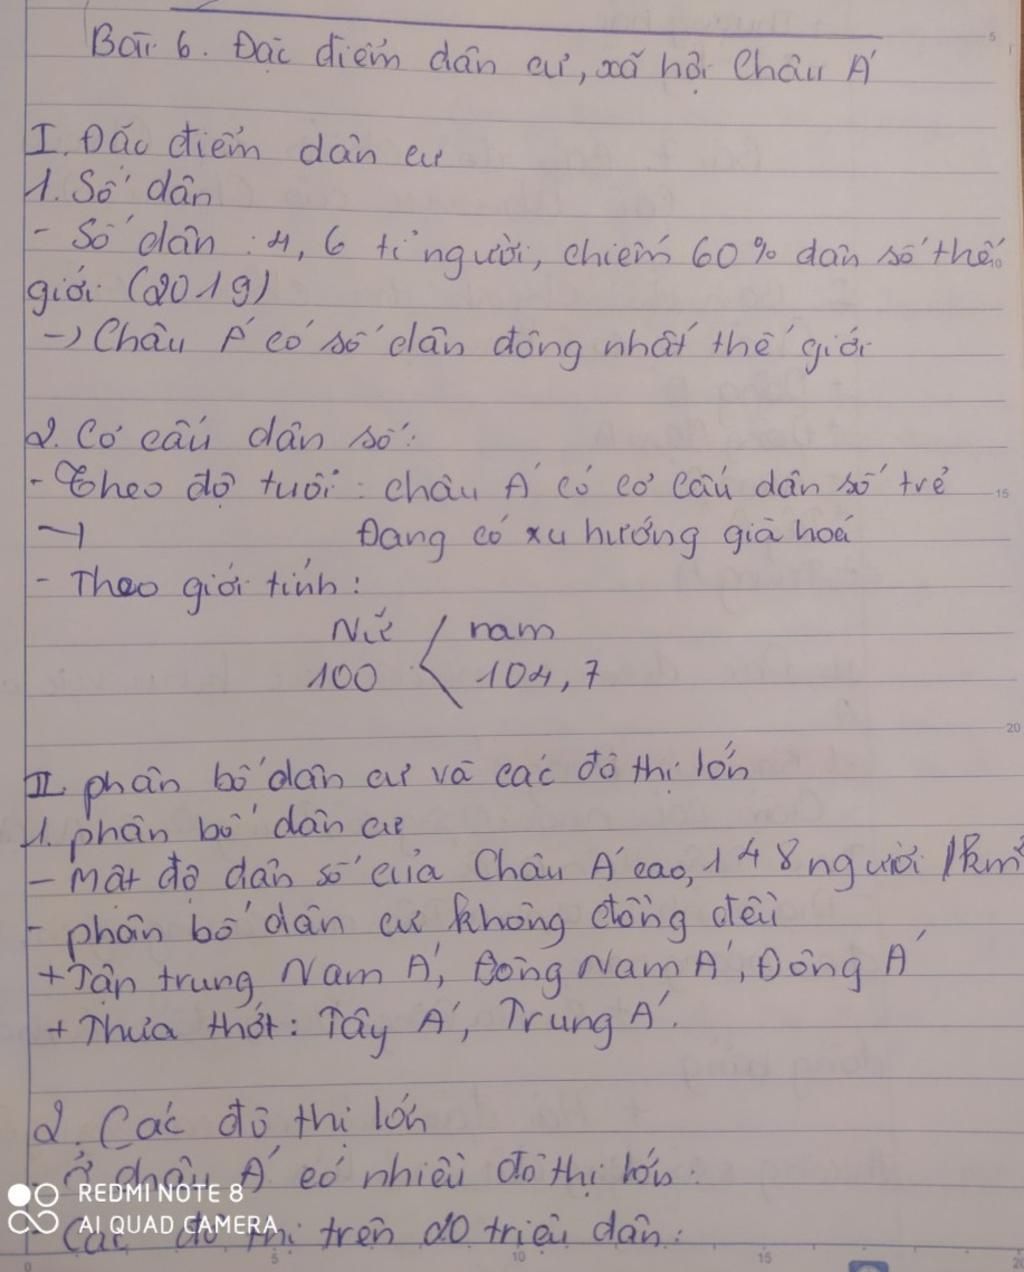 Bài 6. Đặc điểm dân cư, xã hội Châu Á
I. Đặc điểm dân cư
1. Số dân
- Số dân : 4, 6 tỉ người, chiếm 60% dân số thế
giới (2019)
-) Châu Á có số dân đông nhất thế giới
2. Cơ cấu dân số:
- Theo độ tuổi : châu Á có cơ cấu dân số trẻ
Đang có xu hướng già hoá
- Theo giới tính :
Nữ / nam
100 < 104, 7
II phân bố dân cư và các đô thị lớn
1. phân bố dân cư
- Mật độ dân số của Châu Á cao, 148 người /km²
- phân bố dân cư không đồng đều
+ Tập trung Nam Á, Đông Nam Á, Đông Á
+ Thưa thớt : Tây Á, Trung Á.
2. Các đô thị lớn
- Ở châu Á có nhiều đô thị lớn :
- Các đô thị trên 20 triệu dân :
REDMI NOTE 8
AI QUAD CAMERA
5
15
20
5
10
15